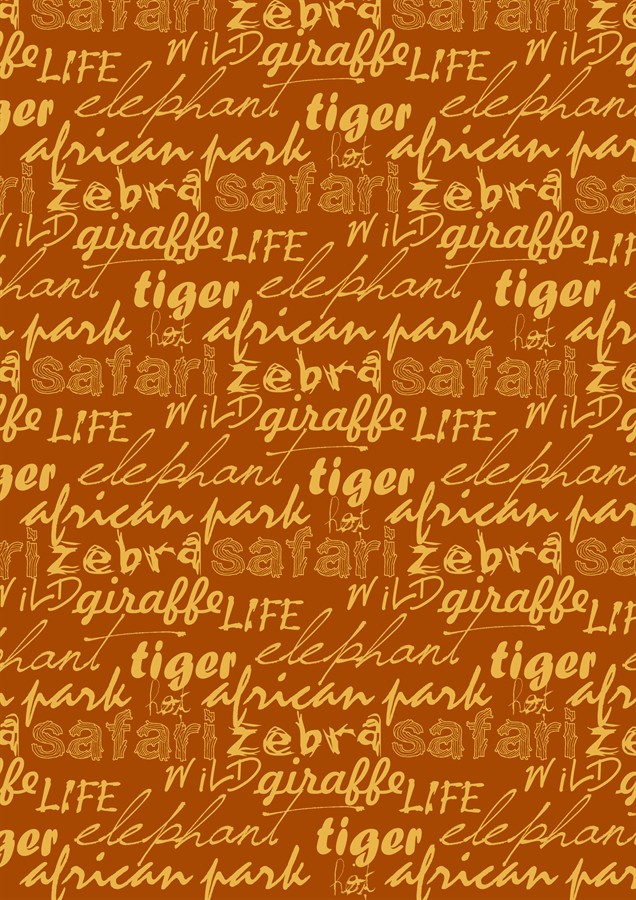 safari zebra safari zebra
giraffe LIFE WiLD giraffe LIFE WiLD
tiger elephant tiger elephant
african park hot african par
ri zebra safari zebra sa
WiLD giraffe LIFE WiLD giraffe LIF
hant tiger elephant tiger
park hot african park hot afr
safari zebra safari ze
ffe LIFE WiLD giraffe LIFE WiLD g
ger elephant tiger elephan
african park hot african par
ari zebra safari zebra sa
WiLD giraffe LIFE WiLD giraffe LIF
phant tiger elephant tiger
park hot african park hot afr
safari zebra safari ze
ffe LIFE WiLD giraffe LIFE WiLD g
ger elephant tiger elephan
african park hot african par